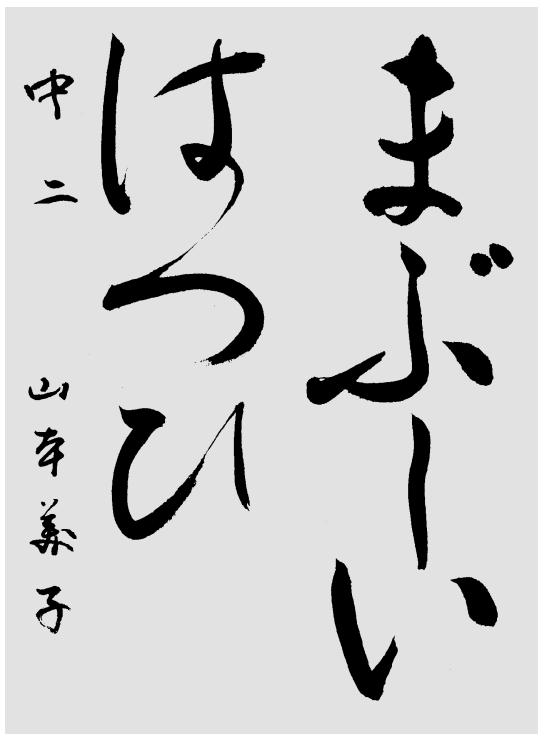 まぶーい
はつひ
中二 山本美子